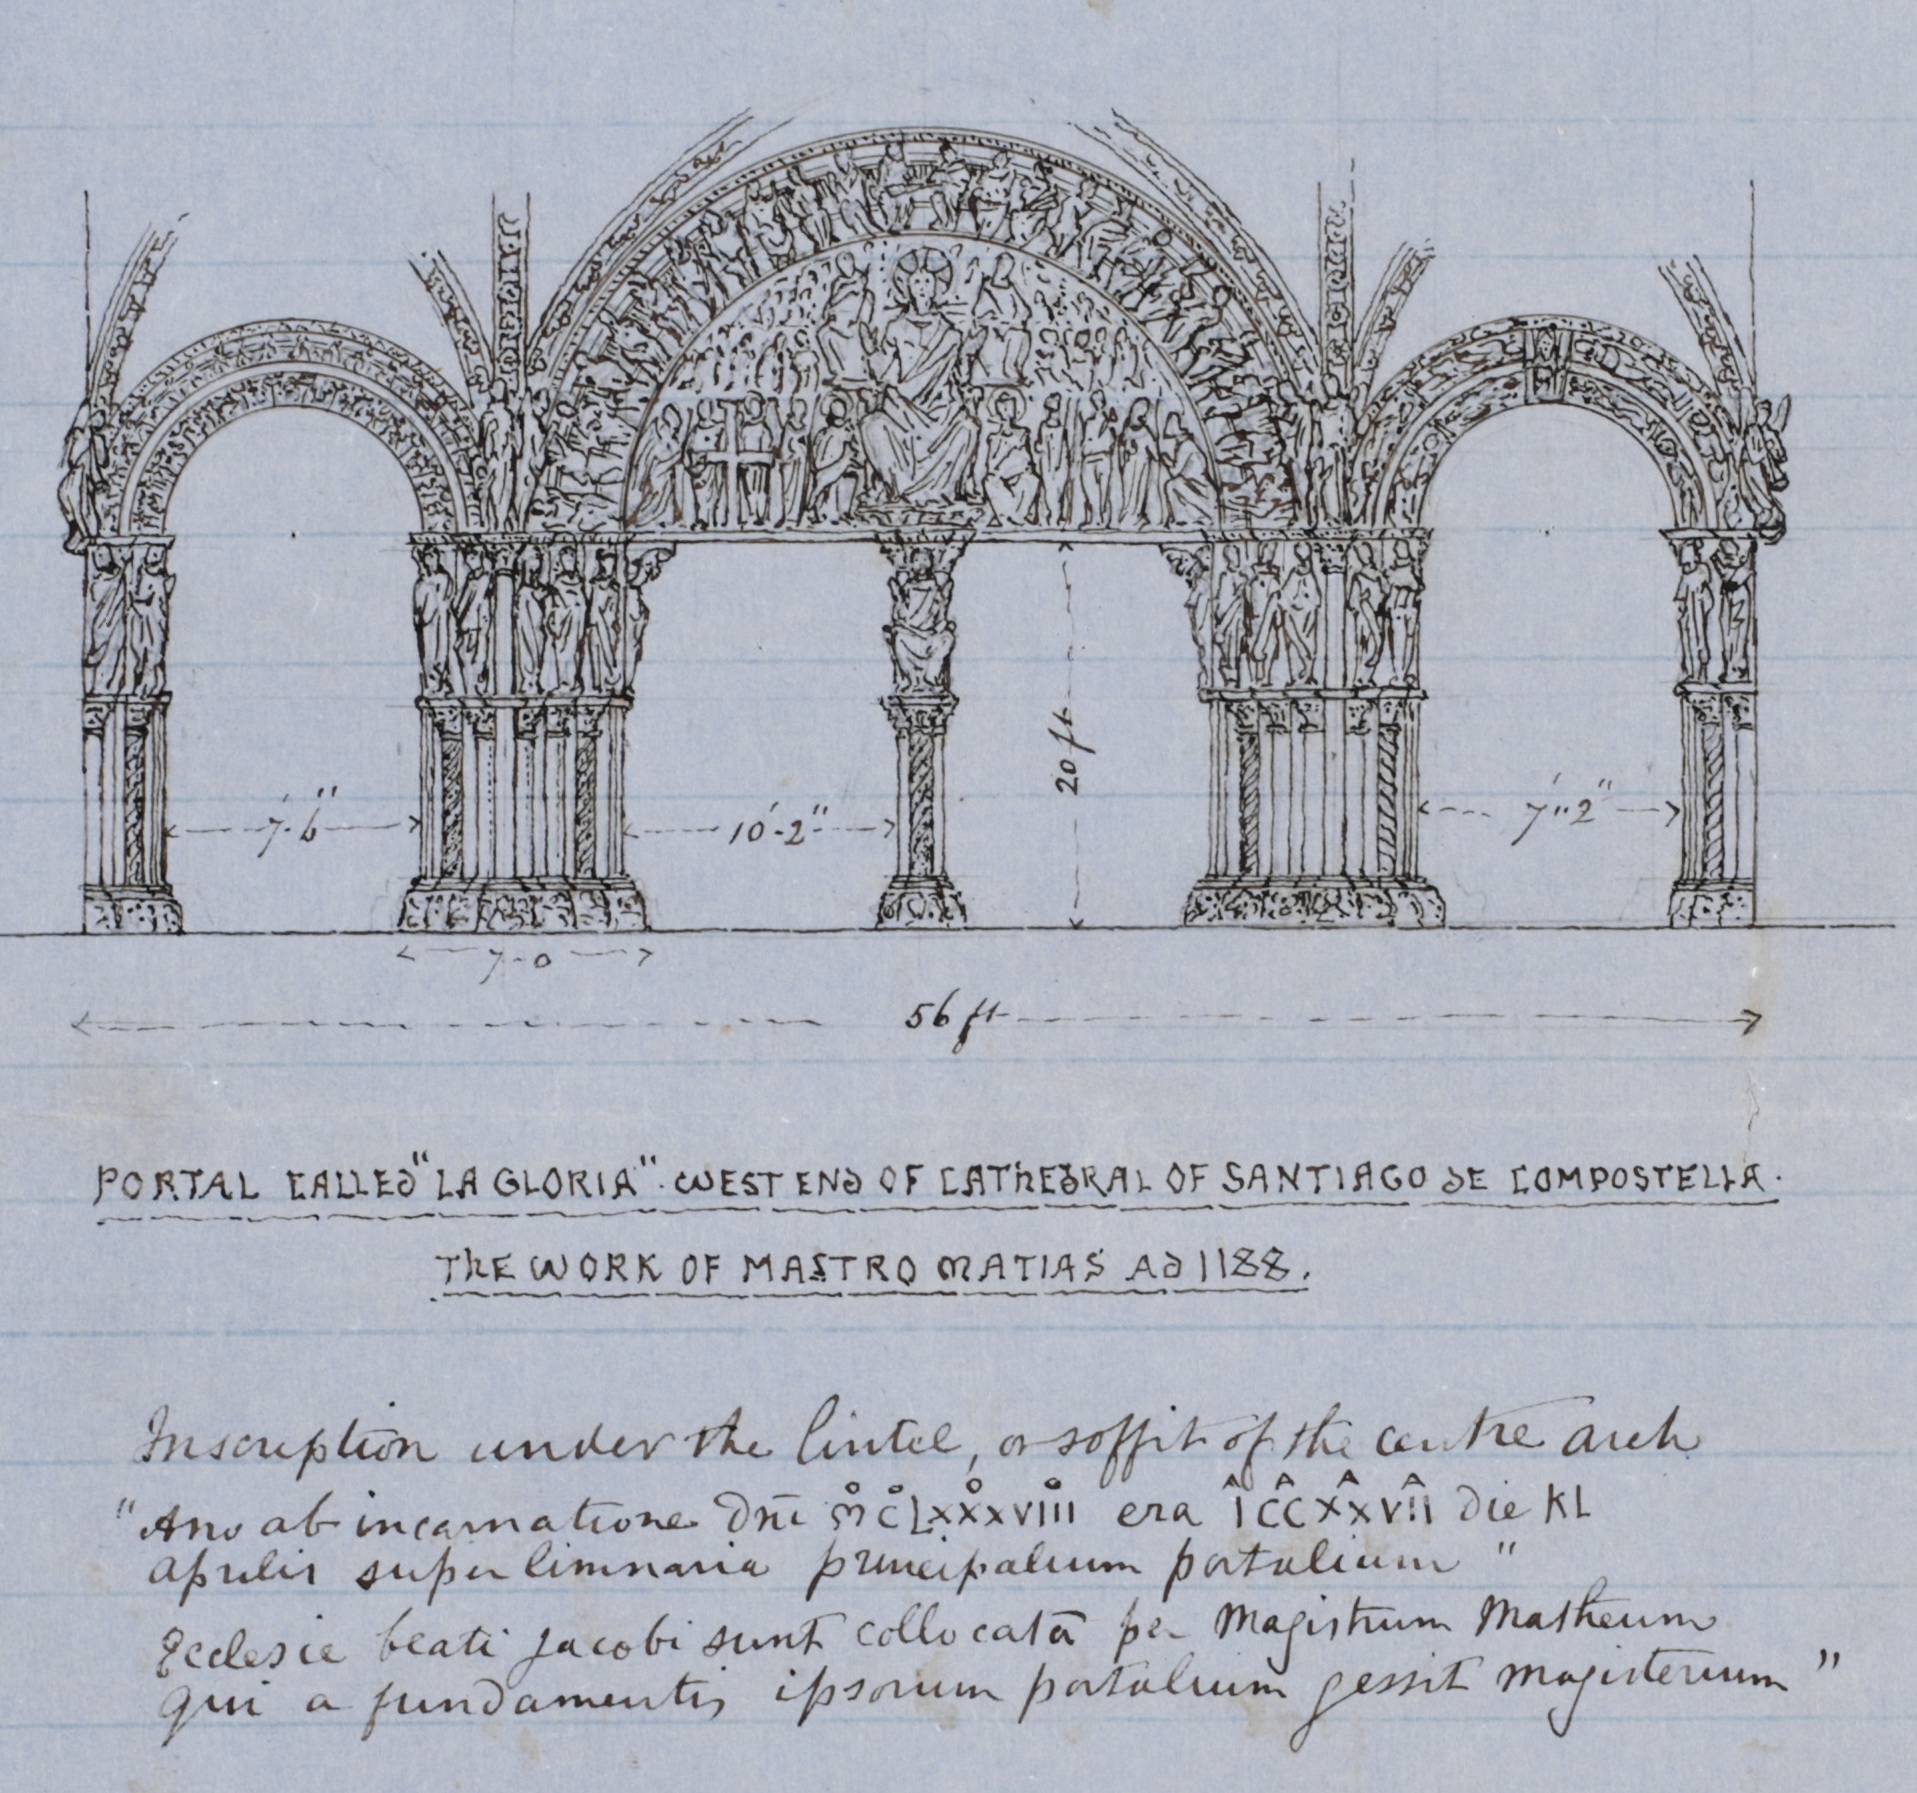 7'-6"
10'-2"
20 ft
7'"2"
7-0
56 ft
PORTAL CALLED "LA GLORIA". WEST END OF CATHEDRAL OF SANTIAGO DE COMPOSTELLA.
THE WORK OF MASTRO MATIAS AD 1188.
Inscription under the lintel, or soffit of the centre arch
"Ano ab incarnatione Dnī M̊C̊LXX̊XVIII̊ era ÎCĈXX̂VÎI die KL
aprilis super liminaria principalium portalium"
Ecclesie beati Jacobi sunt collocatā per Magistrum Matheum
qui a fundamentis ipsorum portalium gessit magisterium"